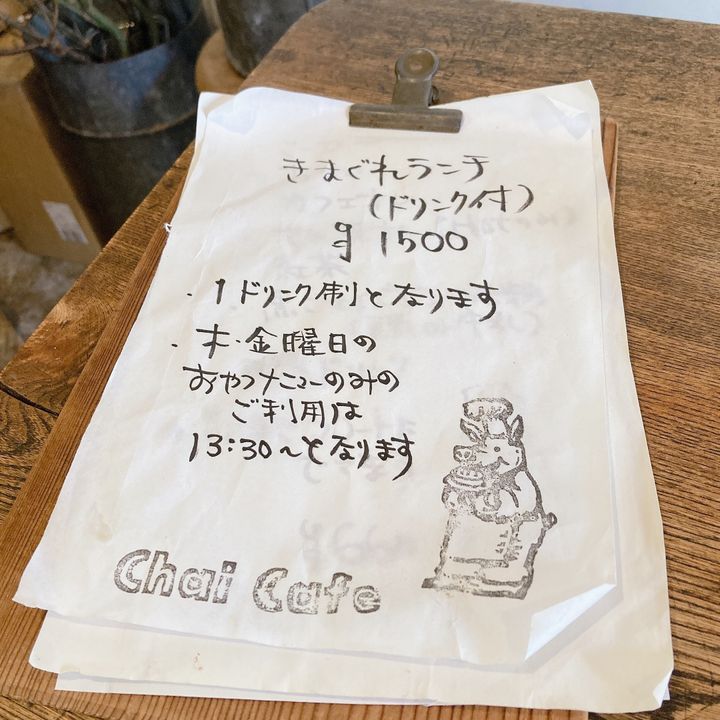 きまぐれランチ
(ドリンク付)
¥1500
・1ドリンク制となります
・木・金曜日の
おやつメニューのみの
ご利用は
13:30~となります
Chai Cafe